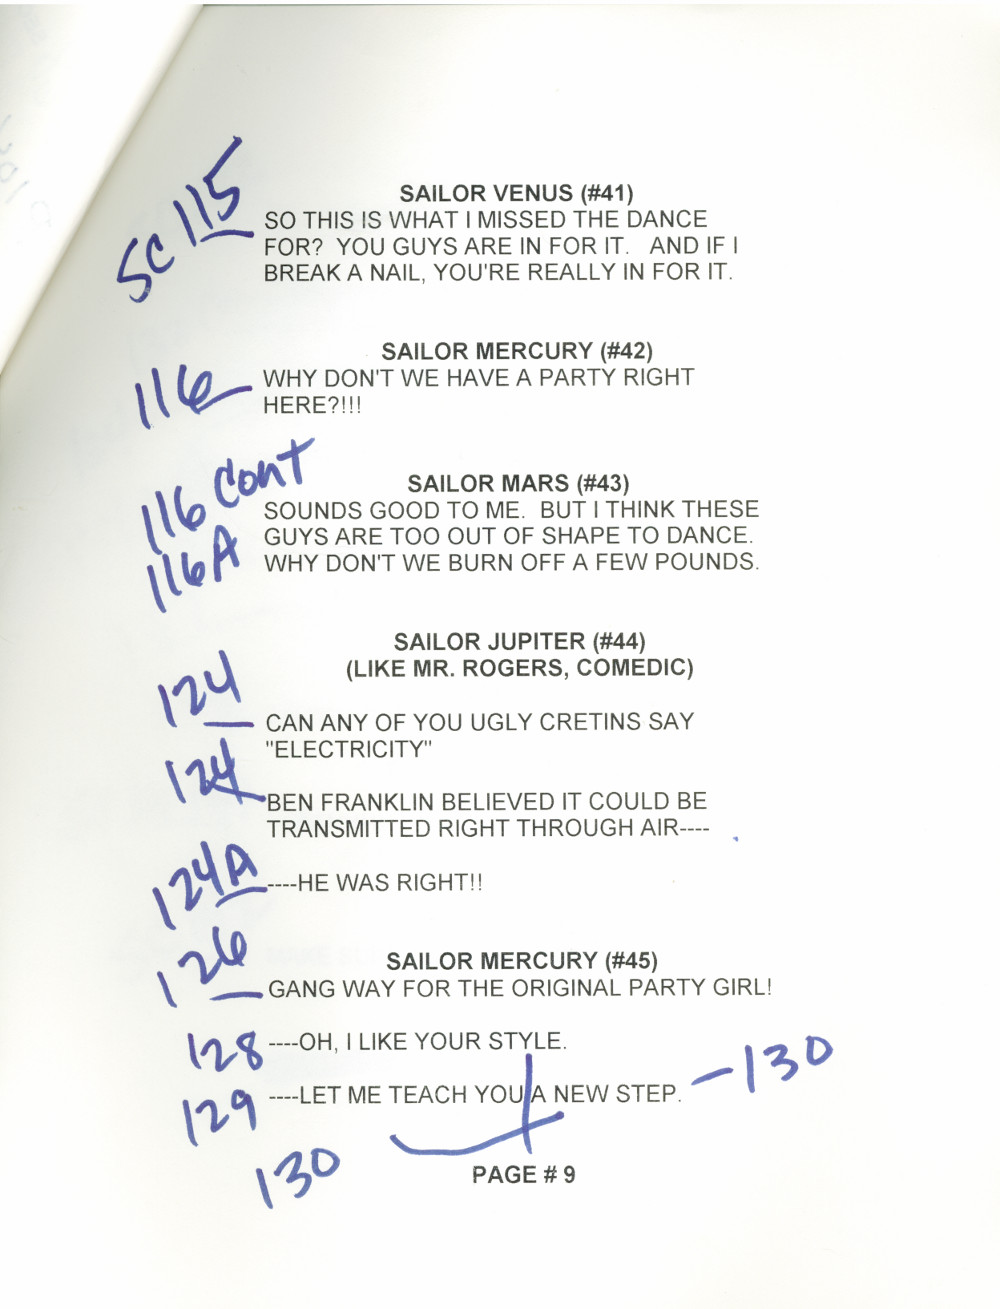 SC 115
SAILOR VENUS (#41)
SO THIS IS WHAT I MISSED THE DANCE
FOR?  YOU GUYS ARE IN FOR IT.   AND IF I
BREAK A NAIL, YOU'RE REALLY IN FOR IT.
SAILOR MERCURY (#42)
116 WHY DON'T WE HAVE A PARTY RIGHT
HERE?!!!
116 Cont
SAILOR MARS (#43)
SOUNDS GOOD TO ME.  BUT I THINK THESE
GUYS ARE TOO OUT OF SHAPE TO DANCE.
116A WHY DON'T WE BURN OFF A FEW POUNDS.
SAILOR JUPITER (#44)
(LIKE MR. ROGERS, COMEDIC)
124
CAN ANY OF YOU UGLY CRETINS SAY
"ELECTRICITY"
124 BEN FRANKLIN BELIEVED IT COULD BE
TRANSMITTED RIGHT THROUGH AIR----
124A ----HE WAS RIGHT!!
SAILOR MERCURY (#45)
126 GANG WAY FOR THE ORIGINAL PARTY GIRL!
128 ----OH, I LIKE YOUR STYLE.
129 ----LET ME TEACH YOU A NEW STEP. -130
130
PAGE # 9